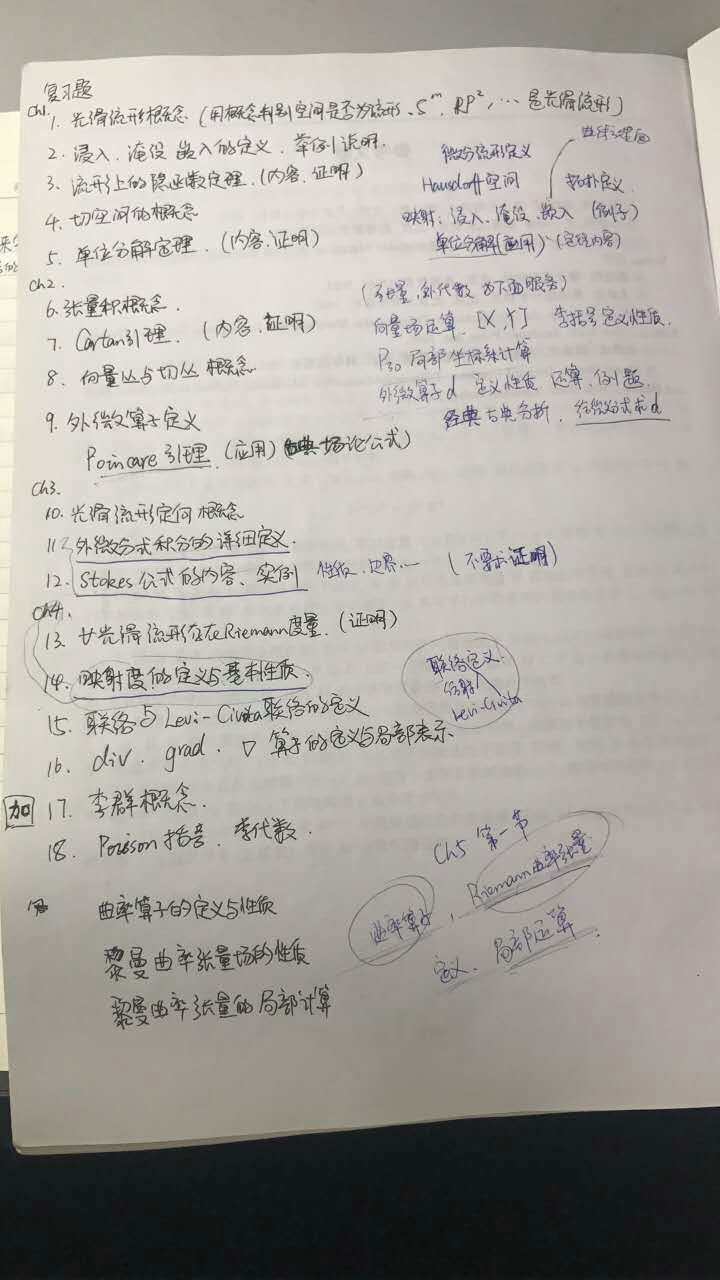 复习题
Ch1.
1. 光滑流形概念 (用概念判别空间是否为流形、S^m, RP^2, … 是光滑流形)
2. 浸入、淹没 嵌入的定义、举例说明.
3. 流形上的隐函数定理. (内容、证明)
4. 切空间的概念
5. 单位分解定理. (内容、证明)
微分流形定义
Hausdorff空间 拓扑定义
映射、浸入、淹没、嵌入 (例子)
单位分解(应用) (定理内容)
Ch2.
6. 张量积概念.
7. Cartan引理. (内容, 证明)
8. 向量丛与切丛 概念
9. 外微分算子定义
Poincare 引理. (应用) 场论公式)
(张量, 外代数 为下面服务)
向量场运算. [X, Y] 李括号定义性质.
P30 局部坐标系计算
外微算子d 定义性质 运算, 例题.
经典 古典分析, 给微分式求d
Ch3.
10. 光滑流形定向概念
11. 外微分式积分的详细定义.
12. Stokes公式的内容、实例 性质, 边界… (不要求证明)
Ch4.
13. ∀光滑流形存在Riemann度量. (证明)
14. 映射度的定义与基本性质.
15. 联络与Levi-Civita联络的定义
16. div. grad. ▽ 算子的定义与局部表示
联络定义
仿射
Levi-Civita
加 17. 李群概念.
18. Poisson括号. 李代数.
曲率算子的定义与性质
黎曼曲率张量场的性质
黎曼曲率张量的局部计算
Ch5 第一节
曲率算子, Riemann曲率张量
定义、局部运算.